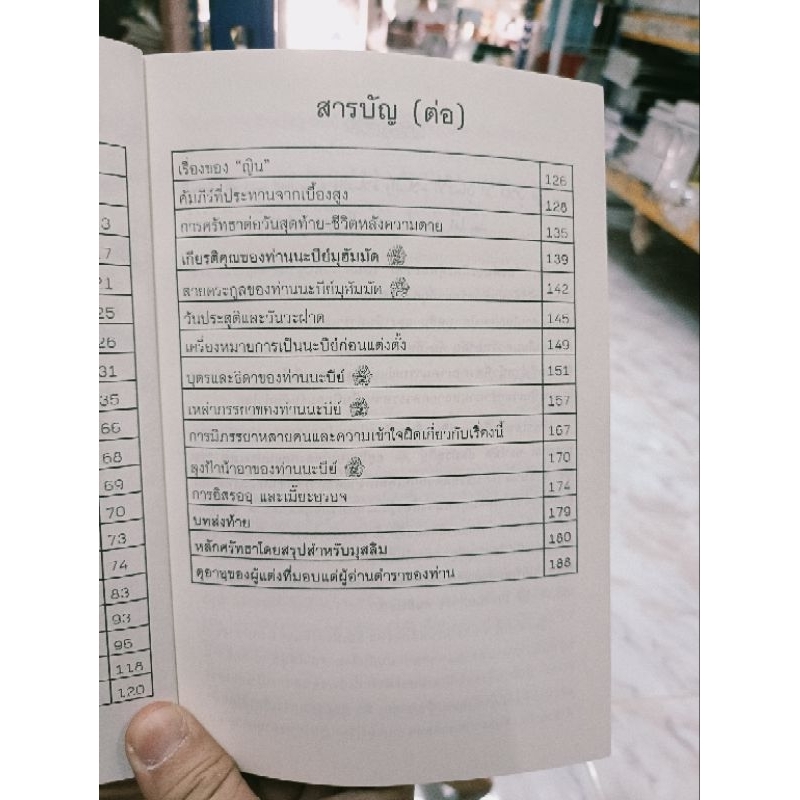 สารบัญ (ต่อ)
เรื่องของ "ญิน" 126
คัมภีร์ที่ประทานจากเบื้องสูง 128
การศรัทธาต่อวันสุดท้าย-ชีวิตหลังความตาย 135
เกียรติคุณของท่านนะบีย์มุฮัมมัด 139
สายตระกูลของท่านนะบีย์มุฮัมมัด 142
วันประสูติและวันวะฝาต 145
เครื่องหมายการเป็นนะบีย์ก่อนแต่งตั้ง 149
บุตรและธิดาของท่านนะบีย์ 151
เหล่าภรรยาของท่านนะบีย์ 157
การมีภรรยาหลายคนและความเข้าใจผิดเกี่ยวกับเรื่องนี้ 167
ลุงป้าน้าอาของท่านนะบีย์ 170
การอิสรออุ และเมี๊ยะอรอจ 174
บทส่งท้าย 179
หลักศรัทธาโดยสรุปสำหรับมุสลิม 180
ดุอาอฺของผู้แต่งที่มอบแด่ผู้อ่านตำราของท่าน 188
3
17
21
25
26
31
35
66
68
69
70
73
74
83
93
96
118
120